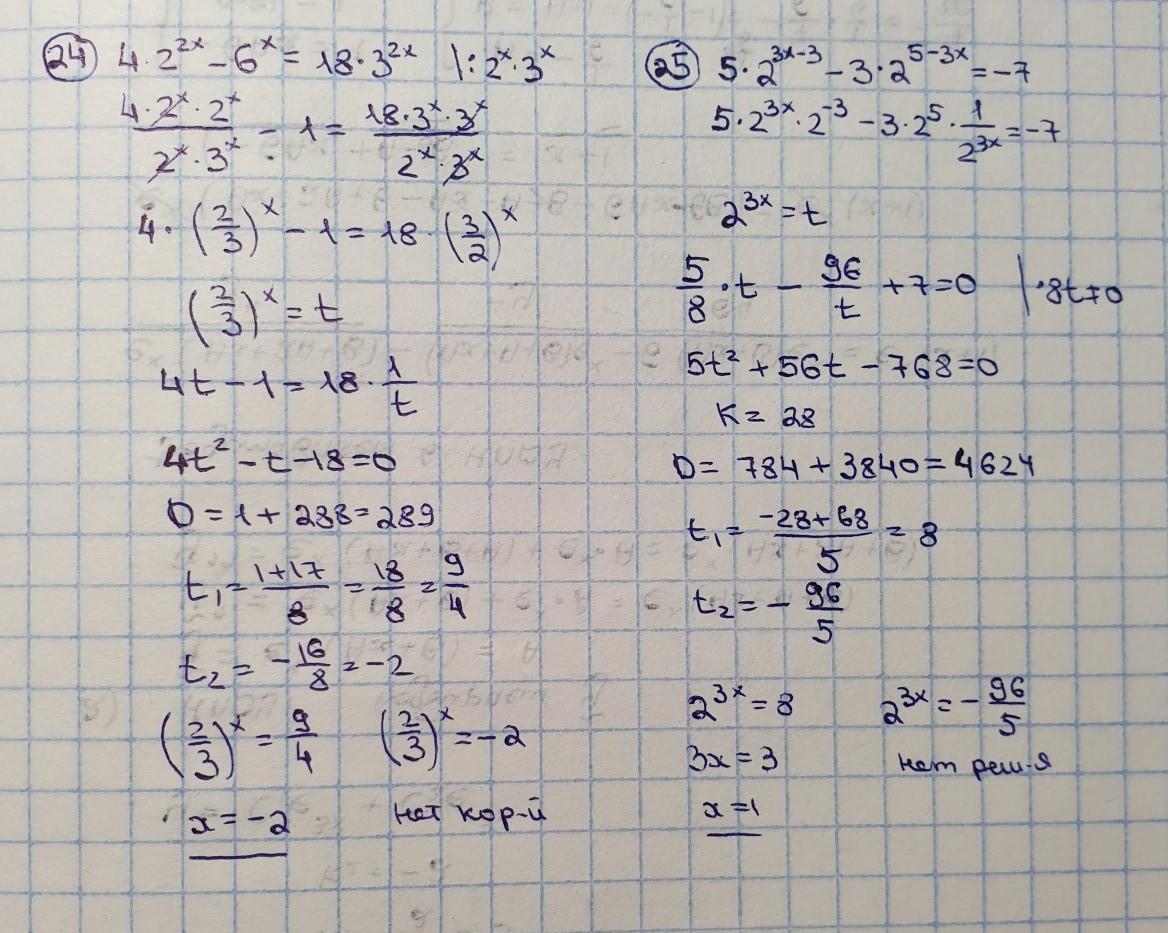 24 4·2^{2x} - 6^x = 18·3^{2x} |: 2^x·3^x
\frac{4·2^x·2^x}{2^x·3^x} - 1 = \frac{18·3^x·3^x}{2^x·3^x}
4·(\frac{2}{3})^x - 1 = 18·(\frac{3}{2})^x
(\frac{2}{3})^x = t
4t - 1 = 18·\frac{1}{t}
4t^2 - t - 18 = 0
D = 1 + 288 = 289
t_1 = \frac{1+17}{8} = \frac{18}{8} = \frac{9}{4}
t_2 = -\frac{16}{8} = -2
(\frac{2}{3})^x = \frac{9}{4} (\frac{2}{3})^x = -2
x = -2 нет кор-й
25 5·2^{3x-3} - 3·2^{5-3x} = -7
5·2^{3x}·2^{-3} - 3·2^5·\frac{1}{2^{3x}} = -7
2^{3x} = t
\frac{5}{8}·t - \frac{96}{t} + 7 = 0 |·8t≠0
5t^2 + 56t - 768 = 0
K = 28
D = 784 + 3840 = 4624
t_1 = \frac{-28+68}{5} = 8
t_2 = -\frac{96}{5}
2^{3x} = 8 2^{3x} = -\frac{96}{5}
3x = 3 нет реш-я
x = 1